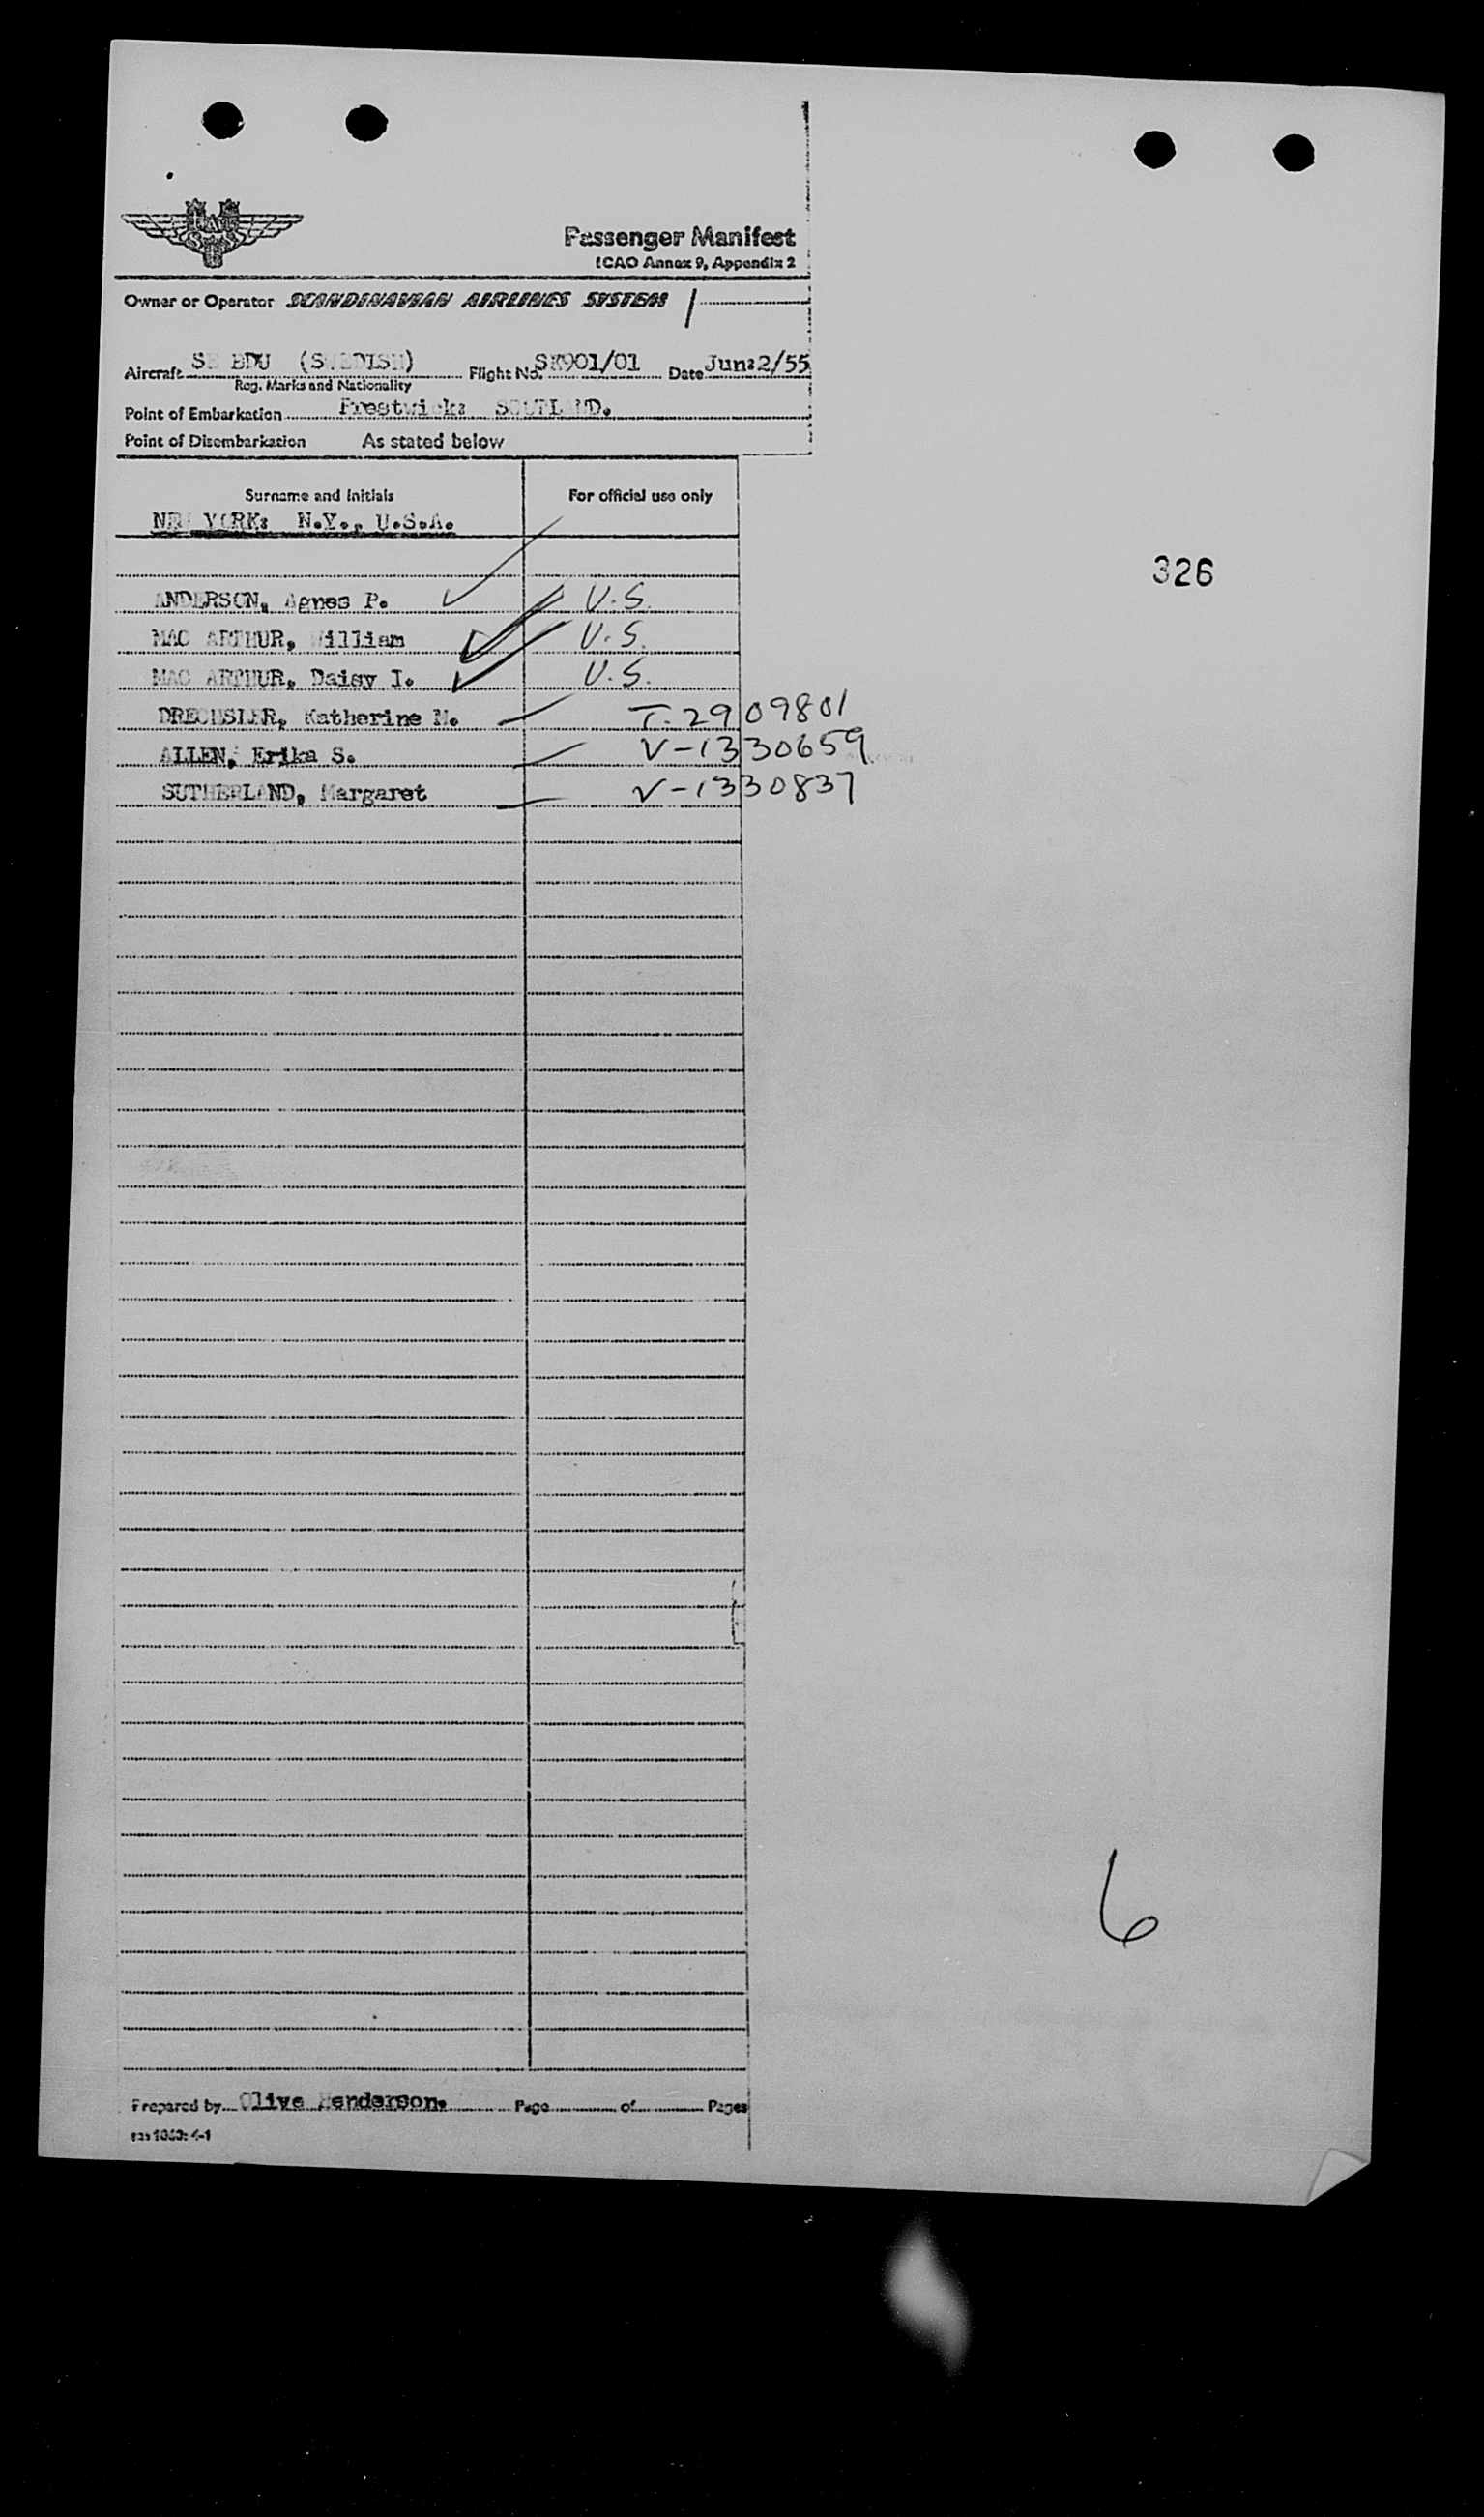 Passenger Manifest
ICAO Annex 9, Appendix 2
Owner or Operator SCANDINAVIAN AIRLINES SYSTEM
Aircraft SE BDU (SWEDISH) Flight No. SK901/01 Date Jun:2/55
Reg. Marks and Nationality
Point of Embarkation Prestwick: SCOTLAND.
Point of Disembarkation As stated below
Surname and Initials For official use only
NEW YORK: N.Y., U.S.A.
326
ANDERSON, Agnes P. U.S.
MAC ARTHUR, William U.S.
MAC ARTHUR, Daisy I. U.S.
DRECHSLER, Katherine M. T-2909801
ALLEN, Erika S. V-1330659
SUTHERLAND, Margaret V-1330837
6
Prepared by Olive Henderson. Page of Pages